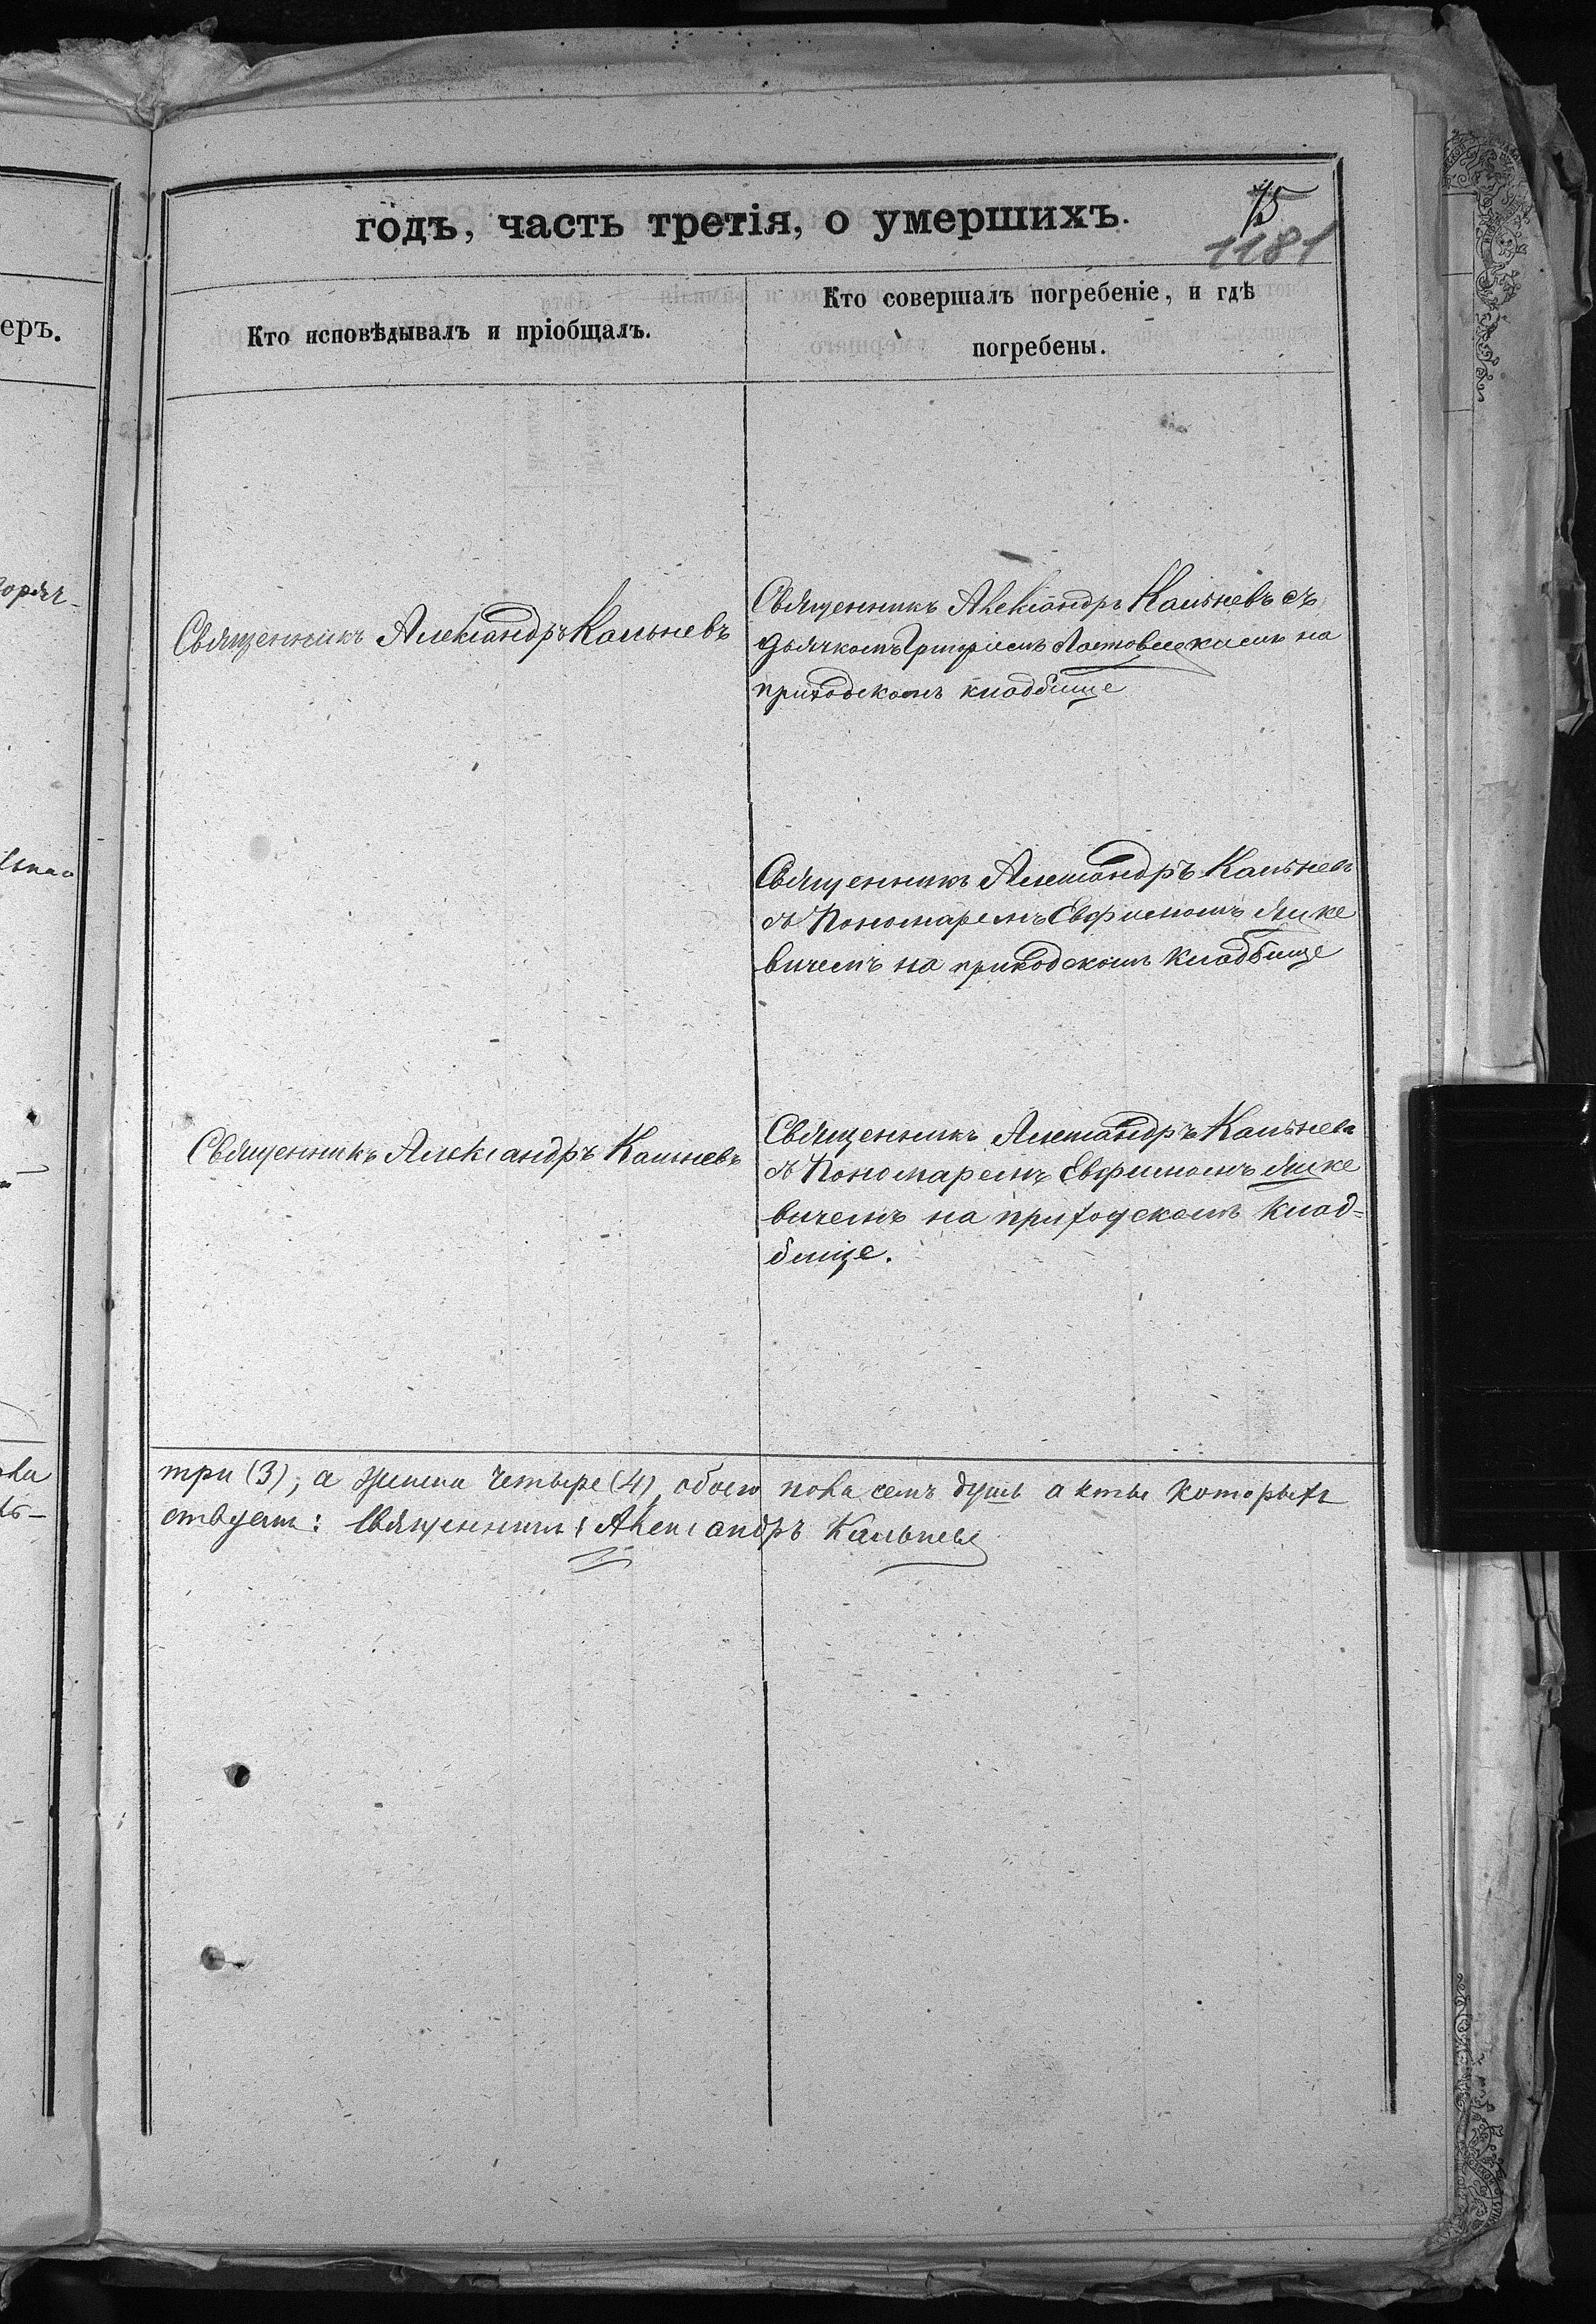 еръ.
годъ, часть третія, о умершихъ.
75
1181
Кто исповѣдывалъ и пріобщалъ.
Кто совершалъ погребеніе, и гдѣ
погребены.
горяч-
Священникъ Александръ Кальневъ
Священникъ Александръ Кальневъ съ
дьячкомъ Григоріемъ на
приходскомъ кладбище
Священникъ Александръ Кальневъ
съ Пономаремъ Евфимомъ Яцке
вичемъ на приходскомъ кладбище
Священникъ Александръ Кальневъ
Священникъ Александръ Кальневъ
съ Пономаремъ Евфимомъ Яцке
вичемъ на приходскомъ клад=
бище.
три (3), а женска четыре (4), обоего пола семь душъ акты которыхъ
ствуетъ: Священникъ Александръ Кальневъ